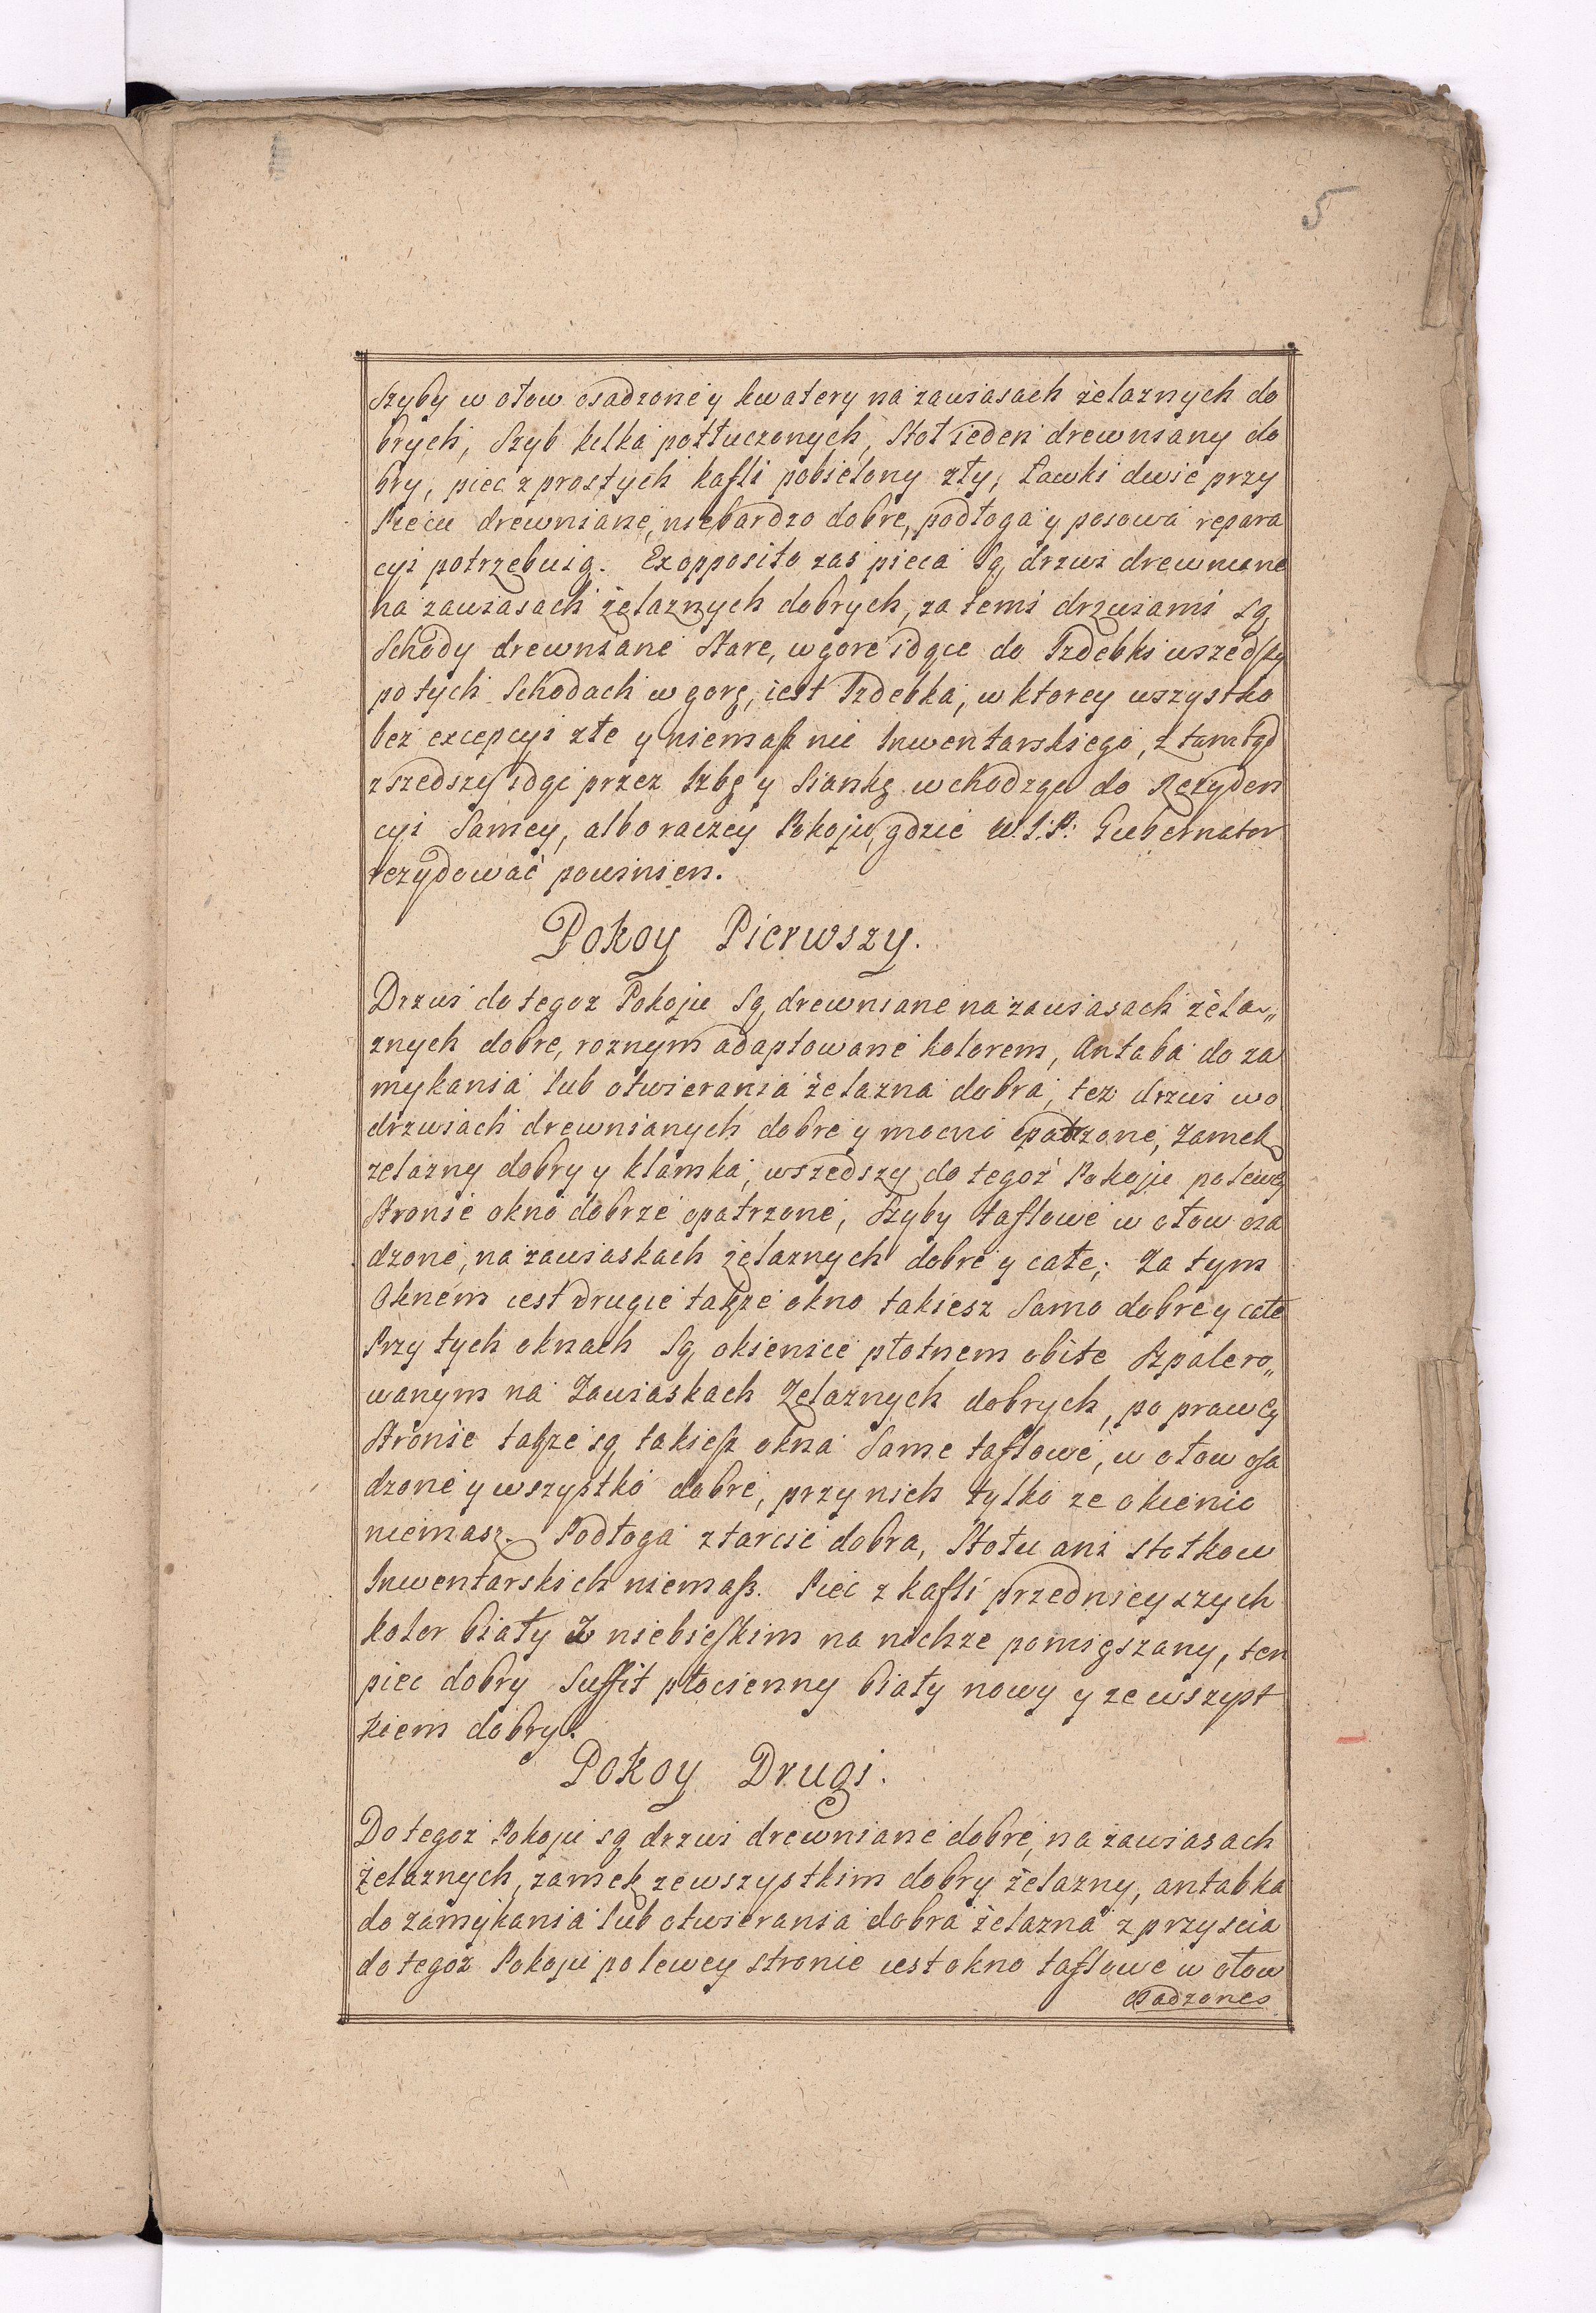 5
Szyby w ołow osadzone y kwatery na zawiasach żelaznych do
brych, Szyb kilka potłuczonych, Stoł ieden drewniany do
bry, piec z prostych kafli pobielony zły, Ławki dwie przy
Piecu drewniane, niebardzo dobre, podłoga y posowa repara
cyi potrzebuią. Exopposito zaś pieca Są drzwi drewniane
na zawiasach żelaznych dobrych, za temi drzwiami są
Schody drewniane Stare, w gore idące do Izdebki wszedszy
po tych Schodach w gorę, iest Izdebka, w ktorey wszystko
bez excepcyi złe y niemasz nic Inwentarskiego, z tamtąd
zszedszy idąc przez Izbę y Siankę wchodzę do Rezyden
cyi Samey, albo raczey Pokoju, gdzie W. J. P. Gubernator
rezydować powinien.
Pokoy Pierwszy.
Drzwi do tegoz Pokoju Są drewniane na zawiasach żela„
znych dobre, roznym adaptowane kolorem, Antaba do za
mykania lub otwierania żelazna dobra, tez drzwi wo
drzwiach drewnianych dobre y mocno opatrzone, Zamek
zelazny dobry y klamka, wszedszy do tegoż Pokoju po lewey
Stronie okno dobrze opatrzone, Szyby taflowe w ołow osa
dzone, na zawiaskach żelaznych dobre y całe; Za tym
Oknem iest drugie także okno takiesz Samo dobre y całe
Przy tych oknach Są okienice płotnem obite Szpalero„
wanym na Zawiaskach Żelaznych dobrych, po prawey
Stronie także są takiesz okna Same taflowe, w ołow osa
dzone y wszystko dobre, przy nich tylko ze okienic
niemasz. Podłoga z tarcic dobra, Stołu ani stołkow
Inwentarskich niemasz. Piec z kafli przednieyszych
kolor biały z niebieskim na nichze pomięszany, ten
piec dobry Suffit płocienny biały nowy y ze wszyst
kiem dobry.
Pokoy Drugi.
Do tegoz Pokoju są drzwi drewniane dobre, na zawiasach
żelaznych, zamek zewszystkim dobry żelazny, antabka
do zamykania lub otwierania dobra żelazna z przyscia
do tegoz Pokoju po lewey stronie iest okno taflowe w ołow
osadzone